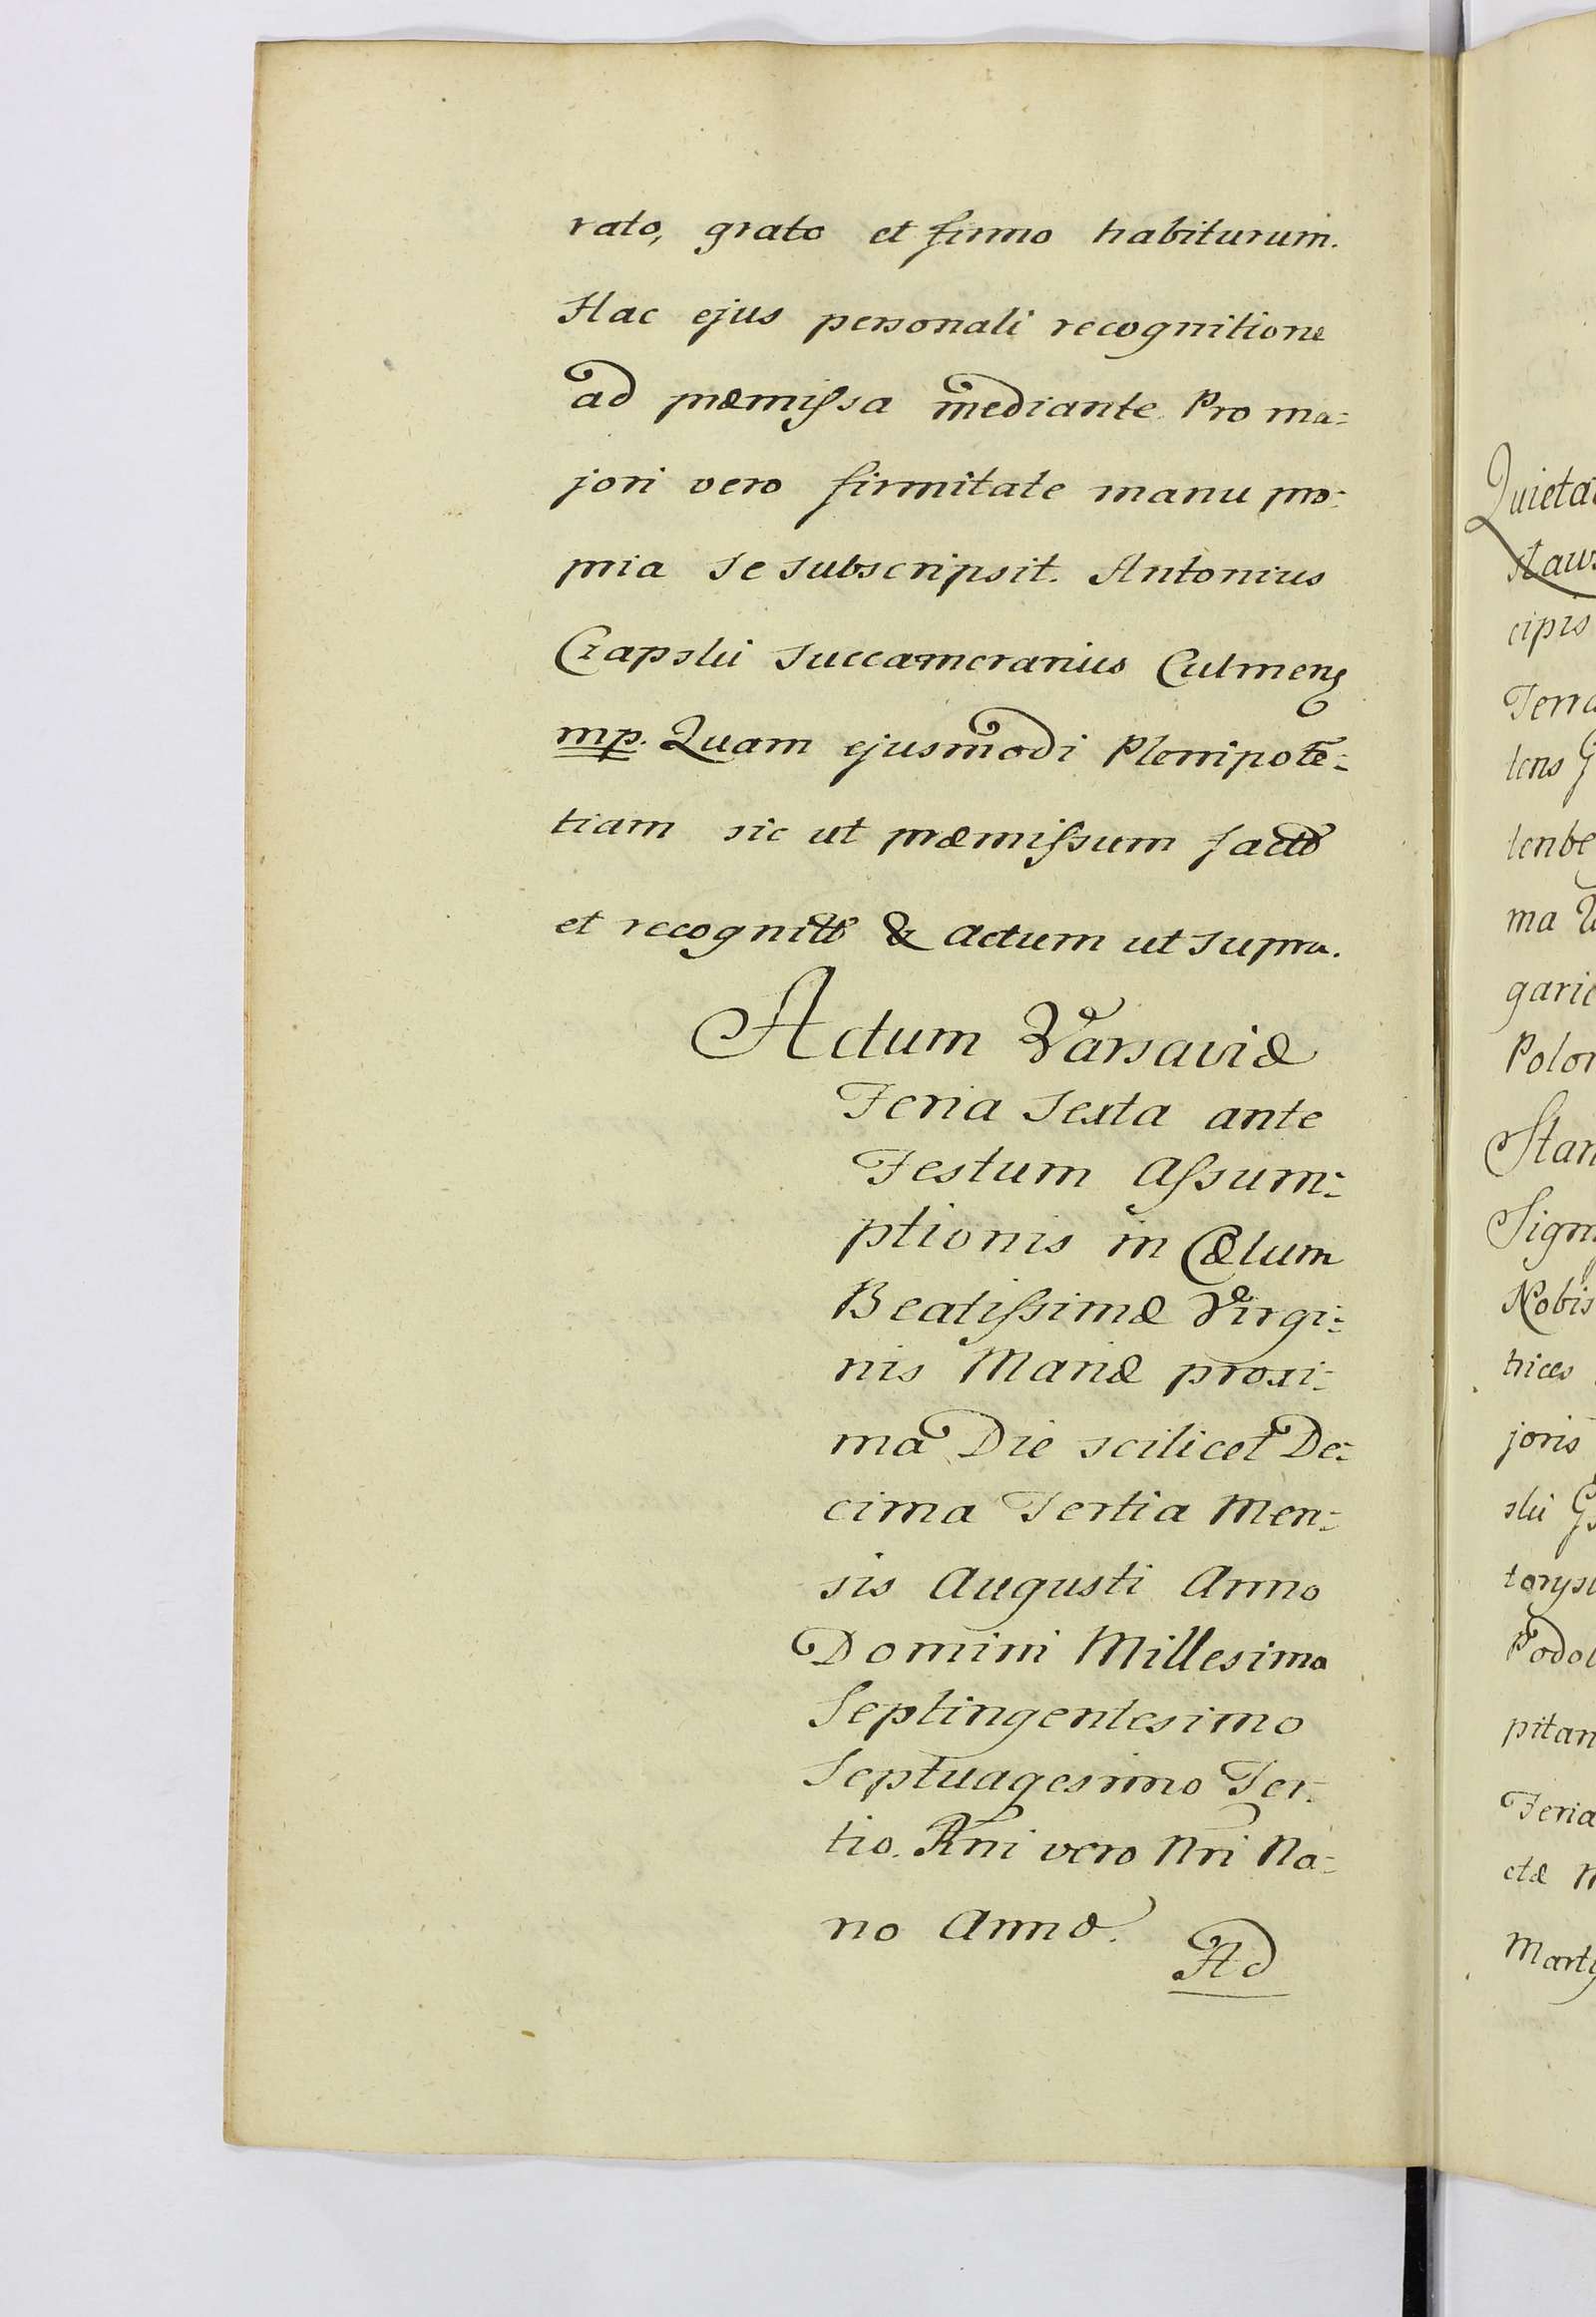 rato, grato et firmo habiturum.
Hac ejus personali recognitione
ad præmissa mediante Pro ma=
jori vero firmitate manu pro=
pria se subscripsit. Antonius
Czapski Succamerarius Culmens
mp. Quam ejusmodi Plenipotē=
tiam sic ut præmissum factō
et recognitō & Actum ut supra.
Actum Varsaviæ
Feria Sexta ante
Festum Assum=
ptionis in Cælum
Beatissimæ Virgi=
nis Mariæ proxi=
ma Die scilicet De=
cima Tertia Men=
sis Augusti Anno
Domini Millesimo
Septingentesimo
Septuagesimo Ter=
tio. Rni vero Nri No=
no Anno.
Ad
Quieta
cipis
Terra
tens G
tenbe
ma
garie
Polon
Stan
Sign
Nobis
trices
joris
ski
torys
Podol
pitan
Feria
ctæ
Marty